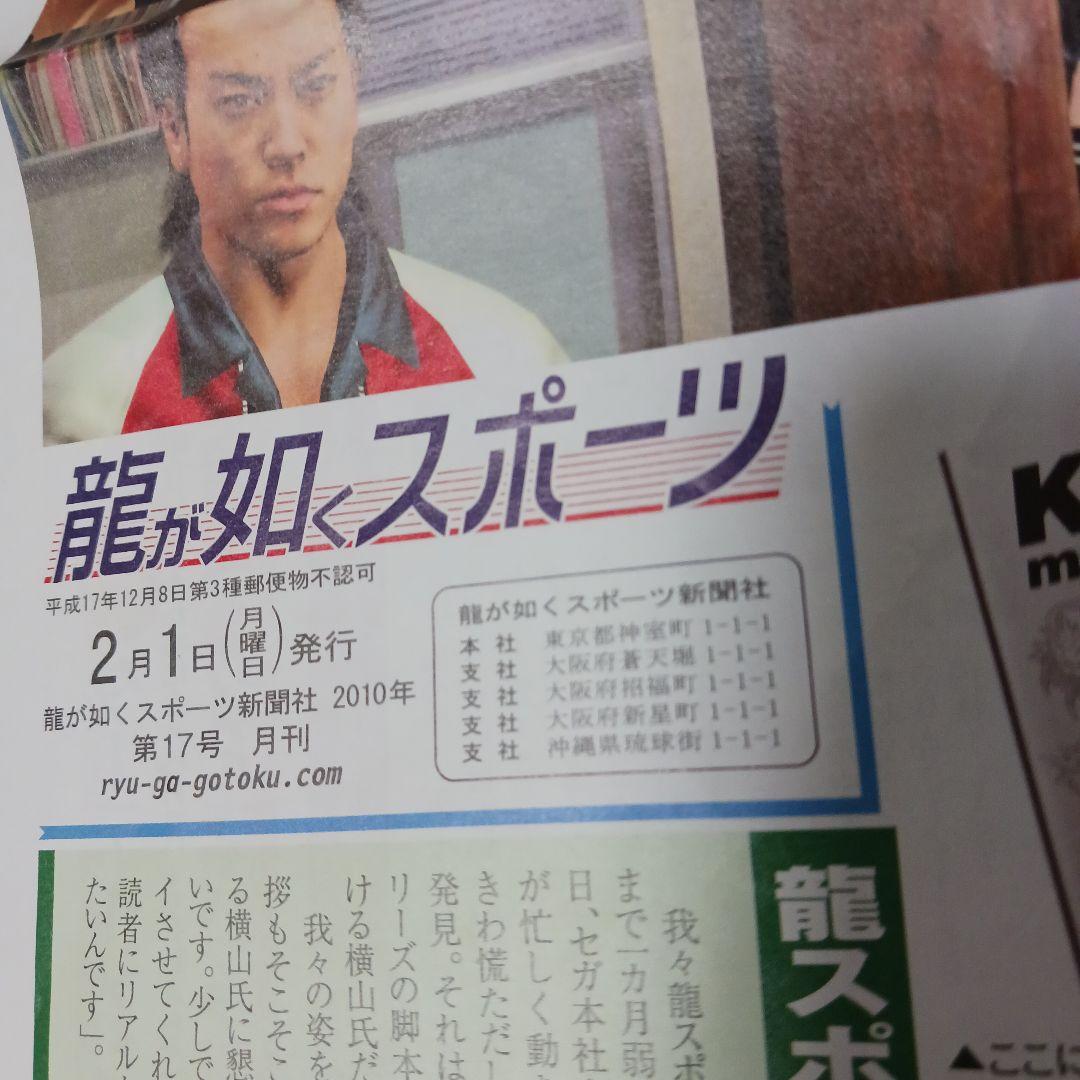 龍が如くスポーツ
平成17年12月8日第3種郵便物不認可
2月1日(月曜日)発行
龍が如くスポーツ新聞社 2010年
第17号 月刊
ryu-ga-gotoku.com
龍が如くスポーツ新聞社
本社 東京都神室町 1-1-1
支社 大阪府蒼天堀 1-1-1
支社 大阪府招福町 1-1-1
支社 大阪府新星町 1-1-1
支社 沖縄県琉球街 1-1-1
K
m
龍スポ
我々龍スポ
まで一カ月弱
日、セガ本社
が忙しく動
きわ慌ただし
発見。それは
リーズの脚本
ける横山氏だ
我々の姿を
拶もそこそこ
る横山氏に懇
いです。少しで
イさせてくれ
読者にリアル
たいんです」。
▲ここに